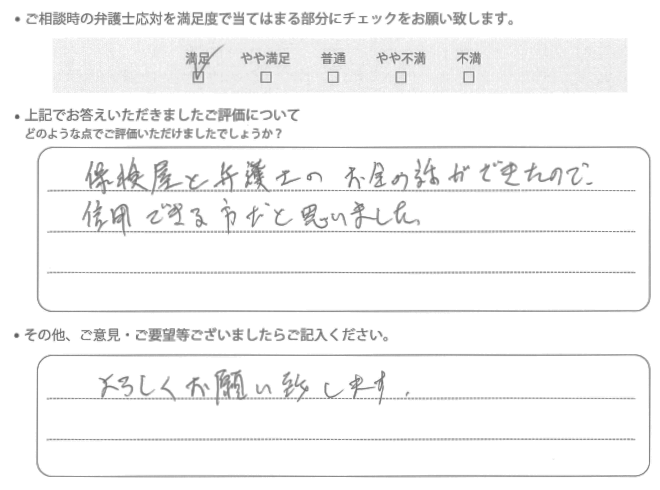 ・ご相談時の弁護士応対を満足度で当てはまる部分にチェックをお願い致します。
満足 やや満足 普通 やや不満 不満
・上記でお答えいただきましたご評価について
どのような点でご評価いただけましたでしょうか？
保険屋と弁護士の お金の話ができたので、
信用できる方だと思いました。
・その他、ご意見・ご要望等ございましたらご記入ください。
よろしくお願い致します。